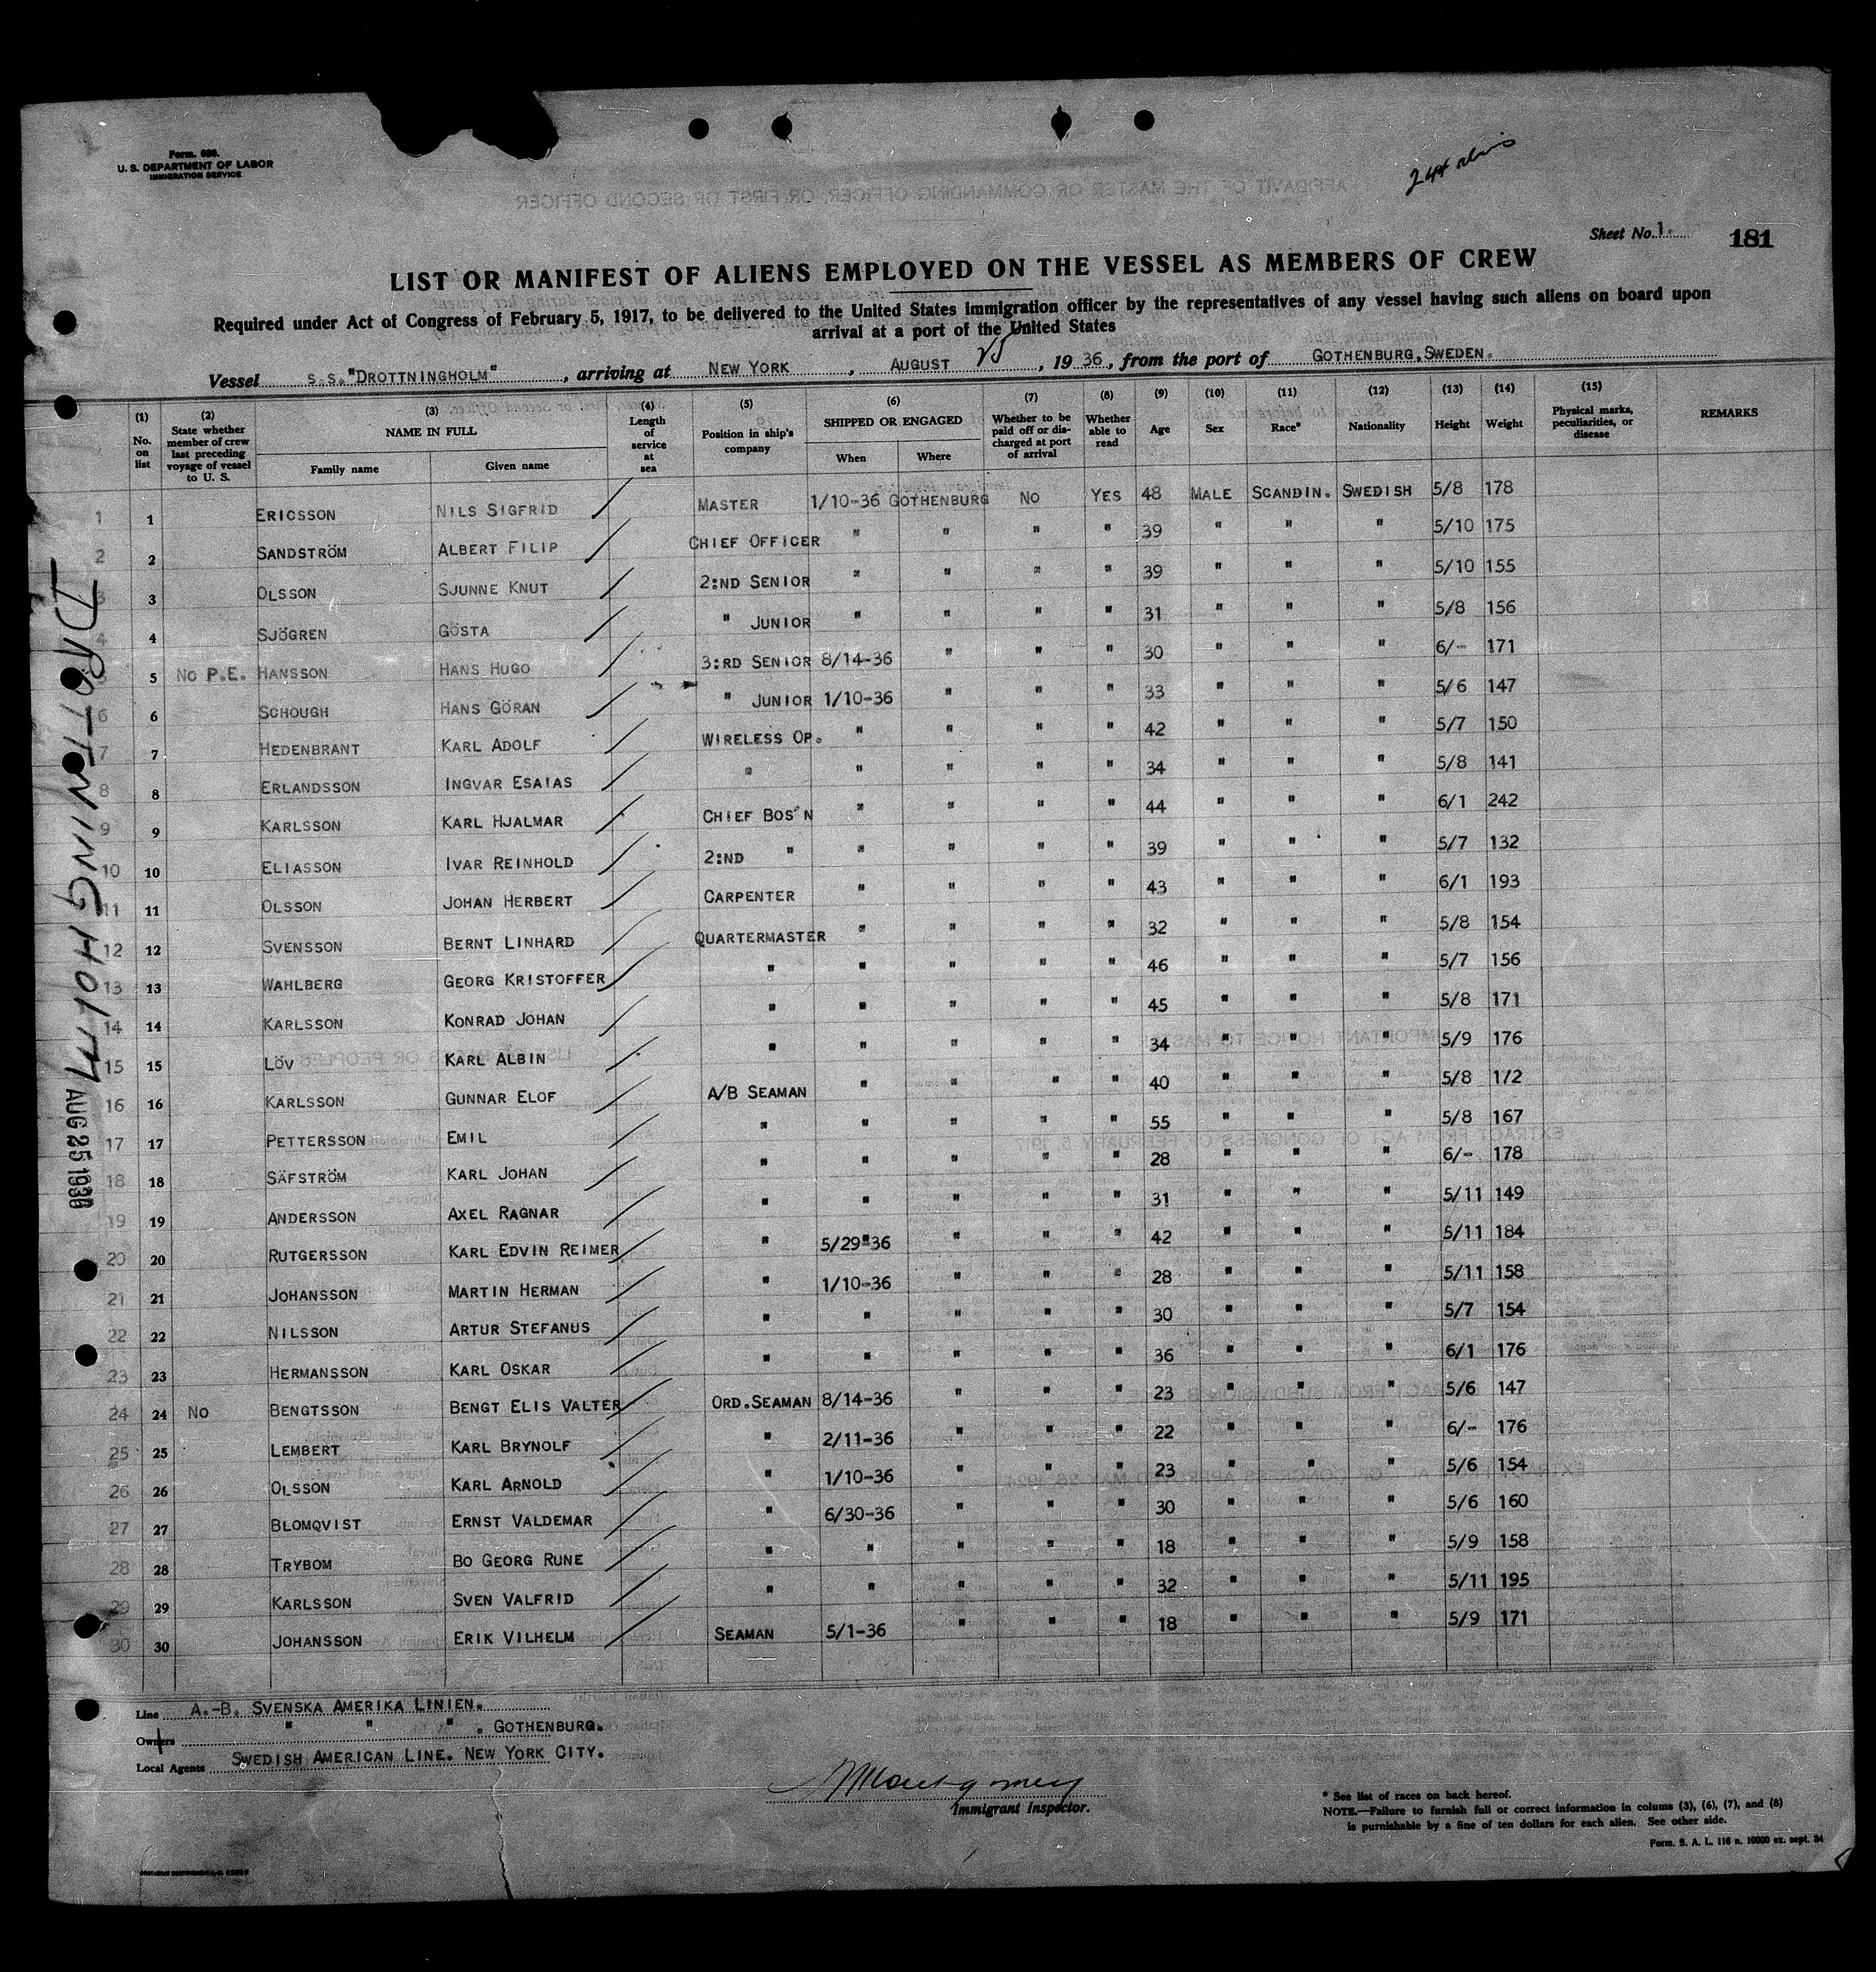 Form. 686.
U. S. DEPARTMENT OF LABOR
IMMIGRATION SERVICE
Sheet No. 1. 181
LIST OR MANIFEST OF ALIENS EMPLOYED ON THE VESSEL AS MEMBERS OF CREW
Required under Act of Congress of February 5, 1917, to be delivered to the United States immigration officer by the representatives of any vessel having such aliens on board upon
arrival at a port of the United States
Vessel S.S."DROTTNINGHOLM", arriving at NEW YORK, AUGUST 25, 1936, from the port of GOTHENBURG,SWEDEN.
(1) No. on list (2) State whether member of crew last preceding voyage of vessel to U. S. (3) NAME IN FULL Family name Given name (4) Length of service at sea (5) Position in ship's company (6) SHIPPED OR ENGAGED When Where (7) Whether to be paid off or discharged at port of arrival (8) Whether able to read (9) Age (10) Sex (11) Race* (12) Nationality (13) Height (14) Weight (15) Physical marks, peculiarities, or disease REMARKS
1 1 ERICSSON NILS SIGFRID MASTER 1/10-36 GOTHENBURG NO YES 48 MALE SCANDIN. SWEDISH 5/8 178
2 2 SANDSTRÖM ALBERT FILIP CHIEF OFFICER " " " " 39 " " " 5/10 175
3 3 OLSSON SJUNNE KNUT 2:ND SENIOR " " " " 39 " " " 5/10 155
4 4 SJÖGREN GÖSTA " JUNIOR " " " " 31 " " " 5/8 156
5 NO P.E. HANSSON HANS HUGO 3:RD SENIOR 8/14-36 " " " 30 " " " 6/- 171
6 6 SCHOUGH HANS GÖRAN " JUNIOR 1/10-36 " " " 33 " " " 5/6 147
7 7 HEDENBRANT KARL ADOLF WIRELESS OP. " " " " 42 " " " 5/7 150
8 8 ERLANDSSON INGVAR ESAIAS " " " " " 34 " " " 5/8 141
9 9 KARLSSON KARL HJALMAR CHIEF BOS'N " " " " 44 " " " 6/1 242
10 10 ELIASSON IVAR REINHOLD 2:ND " " " " " 39 " " " 5/7 132
11 11 OLSSON JOHAN HERBERT CARPENTER " " " " 43 " " " 6/1 193
12 12 SVENSSON BERNT LINHARD QUARTERMASTER " " " " 32 " " " 5/8 154
13 13 WAHLBERG GEORG KRISTOFFER " " " " " 46 " " " 5/7 156
14 14 KARLSSON KONRAD JOHAN " " " " " 45 " " " 5/8 171
15 15 LÖV KARL ALBIN " " " " " 34 " " " 5/9 176
16 16 KARLSSON GUNNAR ELOF A/B SEAMAN " " " " 40 " " " 5/8 172
17 17 PETTERSSON EMIL " " " " " 55 " " " 5/8 167
18 18 SÄFSTRÖM KARL JOHAN " " " " " 28 " " " 6/- 178
19 19 ANDERSSON AXEL RAGNAR " " " " " 31 " " " 5/11 149
20 20 RUTGERSSON KARL EDVIN REIMER " 5/29-36 " " " 42 " " " 5/11 184
21 21 JOHANSSON MARTIN HERMAN " 1/10-36 " " " 28 " " " 5/11 158
22 22 NILSSON ARTUR STEFANUS " " " " " 30 " " " 5/7 154
23 23 HERMANSSON KARL OSKAR " " " " " 36 " " " 6/1 176
24 24 NO BENGTSSON BENGT ELIS VALTER ORD.SEAMAN 8/14-36 " " " 23 " " " 5/6 147
25 25 LEMBERT KARL BRYNOLF " 2/11-36 " " " 22 " " " 6/- 176
26 26 OLSSON KARL ARNOLD " 1/10-36 " " " 23 " " " 5/6 154
27 27 BLOMQVIST ERNST VALDEMAR " 6/30-36 " " " 30 " " " 5/6 160
28 28 TRYBOM BO GEORG RUNE " " " " " 18 " " " 5/9 158
29 29 KARLSSON SVEN VALFRID " " " " " 32 " " " 5/11 195
30 30 JOHANSSON ERIK VILHELM SEAMAN 5/1-36 " " " 18 " " " 5/9 171
DROTTNINGHOLM
AUG 25 1936
Line A.-B. SVENSKA AMERIKA LINIEN.
Owners " " " . GOTHENBURG.
Local Agents SWEDISH AMERICAN LINE. NEW YORK CITY.
Montgomery
Immigrant Inspector.
* See list of races on back hereof.
NOTE.—Failure to furnish full or correct information in colums (3), (6), (7), and (8)
is purnishable by a fine of ten dollars for each alien. See other side.
Form. S. A. L. 116 n. 10000 ex. sept. 34